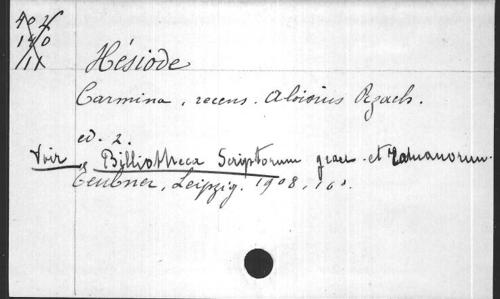 402
140
11
Hésiode
Carmina, recens. Aloisius Rzach.
ed. 2.
Voir Bibliotheca Scriptorum graec. et romanorum.
Teubner, Leipzig. 1908, 16º.